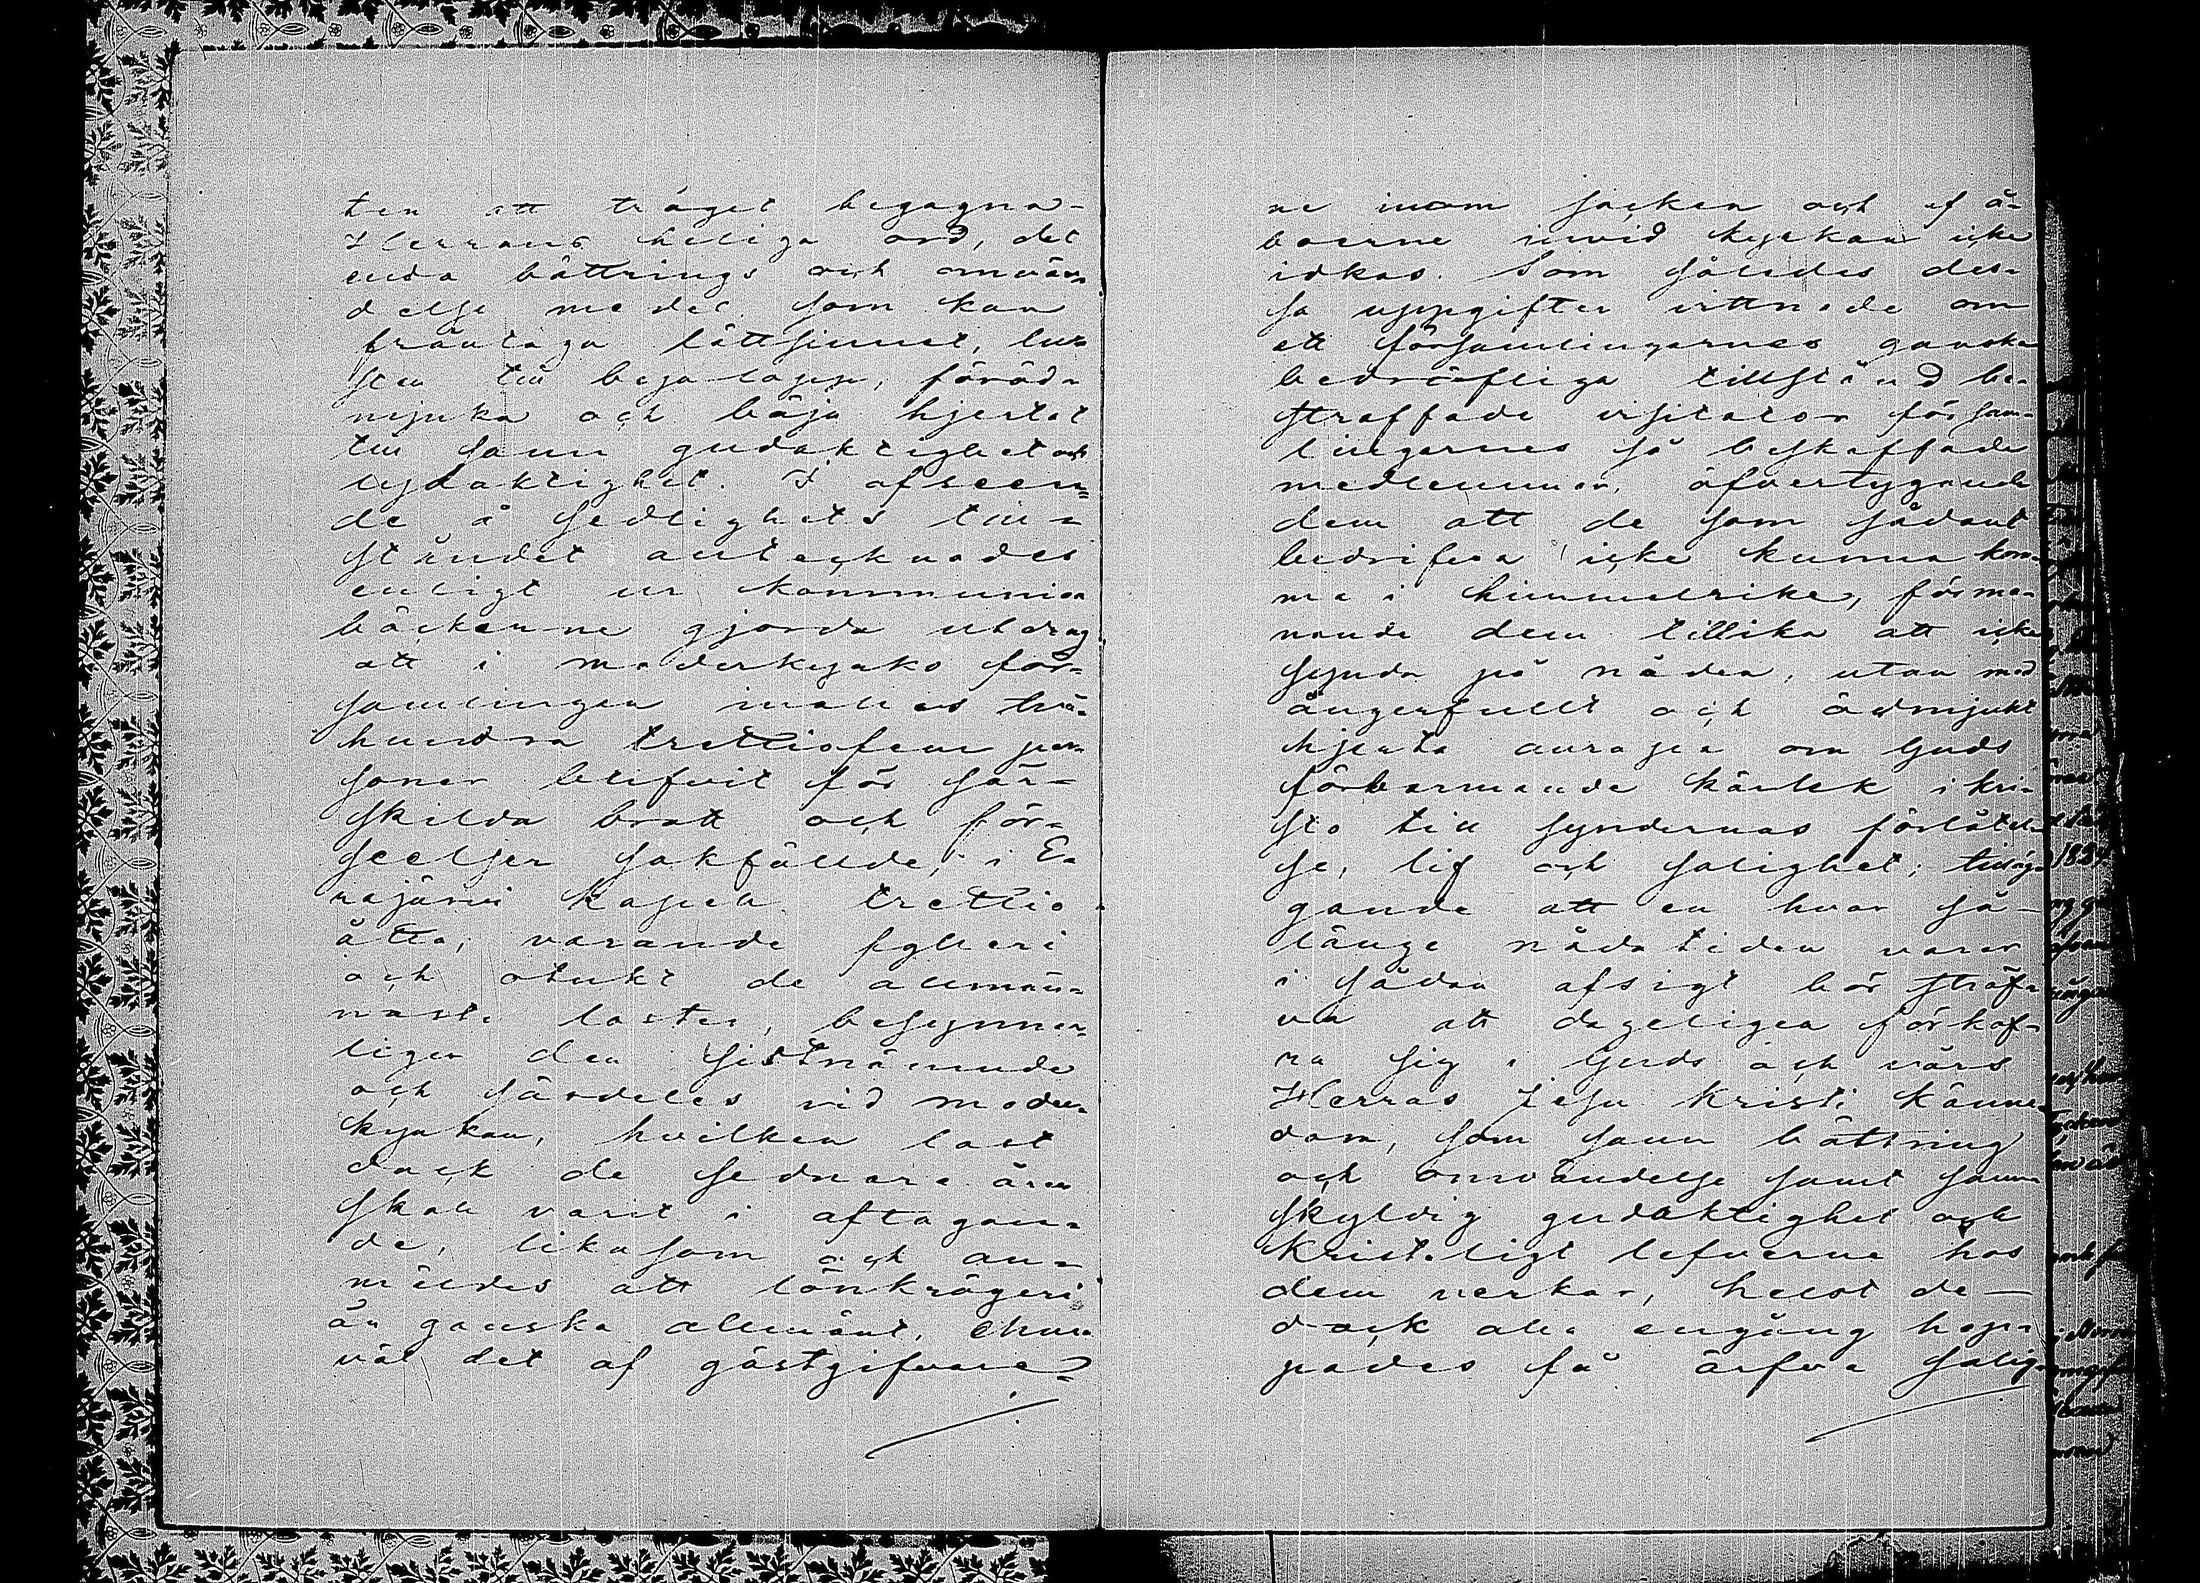 ten att träget begagna
Herrans heliga ord, det
enda bättrings och omvän-
delse medel som kan
fråntaga lättsinnet, lu-
sten till
mjuka och böja hjertat
till sann gudaktighet och
lydaktighet. I afseen-
de å sedlighets till-
ståndet antecknades
enligt ur kommunion
böckerne gjorda utdrag
att i moderkyrko för-
samlingen inalles två-
hundra trettiofem per-
soner blifvit för sär-
skilda brott och för-
seelser sakfällde; i E-
najärvi kapell trettio
åtta; varande fylleri
och otukt de allmän-
naste laster, besynner-
ligen den sistnämnde
och särdeles vid moder-
kyrkan, hvilken last
dock de sednare åren
skall varit i aftagan-
de, likasom och an-
mäldes att lönkrögeri
är ganska allmänt, ehuru
väl det af gästgifvare-
ne inom socken och af å-
boerne invid kyrkan icke
idkas. Som således des-
sa uppgifter vittnade om
ett församlingarnes ganska
bedröfliga tillstånd be-
straffade visitator försam-
lingarnes så beskaffade
medlemmar, öfvertygande
dem att de som sådant
bedrifva icke kunna kom-
ma i himmelrike, förma-
nande dem tillika att icke
synda på nåden, utan med
ångerfullt och ödmjukt
hjerta anropa om Guds
förbarmande kärlek i Kri-
sto till syndernas förlåtel-
se, lif och salighet; tilläg-
gande att en hvar så-
länge nådatiden varar
i sådan afsigt bör sträf-
va att dageligen förkof-
ra sig i Guds och vårs
Herras Jesu Kristi känne-
dom, som sann bättring
och omvändelse samt sann
skyldig gudaktighet och
kristeligt lefverne hos
dem verkar, helst de
dock alla engång hop-
pades få ärfva salig-